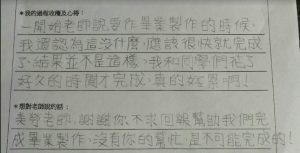 *我的過程收穫及心得：
一開始老師說要作畢業製作的時候，
我還認為這沒什麼，應該很快就完成
了，結果並不是這樣，我和同學們花了
好久的時間才完成，真的好累啊！
*想對老師說的話：
老師，謝謝你，不求回報幫助我們完
成畢業製作，沒有你的幫忙，是不可能完成的！